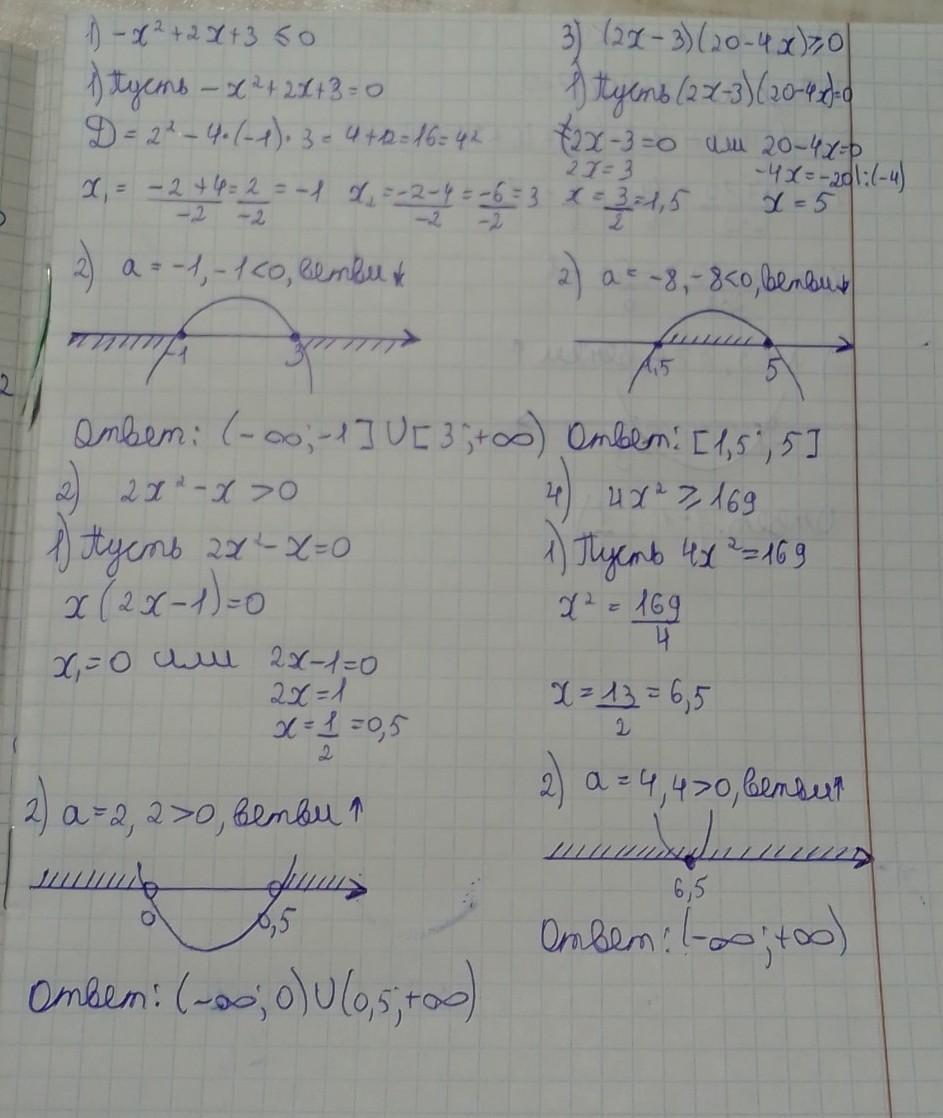 1) -x² + 2x + 3 ≤ 0
1) Пусть -x² + 2x + 3 = 0
Д = 2² - 4·(-1)·3 = 4+12=16=4²
x₁ = -2+4/-2 = 2/-2 = -1 x₂ = -2-4/-2 = -6/-2 = 3
2) a = -1, -1<0, ветви ↓
-1 3
Ответ: (-∞; -1] U [3; +∞)
2) 2x² - x > 0
1) Пусть 2x² - x = 0
x(2x-1)=0
x₁=0 или 2x-1=0
2x=1
x=1/2=0,5
2) a=2, 2>0, ветви ↑
0 0,5
Ответ: (-∞; 0)U(0,5; +∞)
3) (2x-3)(20-4x)≥0
1) Пусть (2x-3)(20-4x)=0
2x-3=0 или 20-4x=0
2x=3 -4x=-20|:(-4)
x=3/2=1,5 x=5
2) a = -8, -8<0, ветви ↓
1,5 5
Ответ: [1,5; 5]
4) 4x² ≥ 169
1) Пусть 4x²=169
x² = 169/4
x = 13/2 = 6,5
2) a = 4, 4>0, ветви ↑
6,5
Ответ: (-∞; +∞)